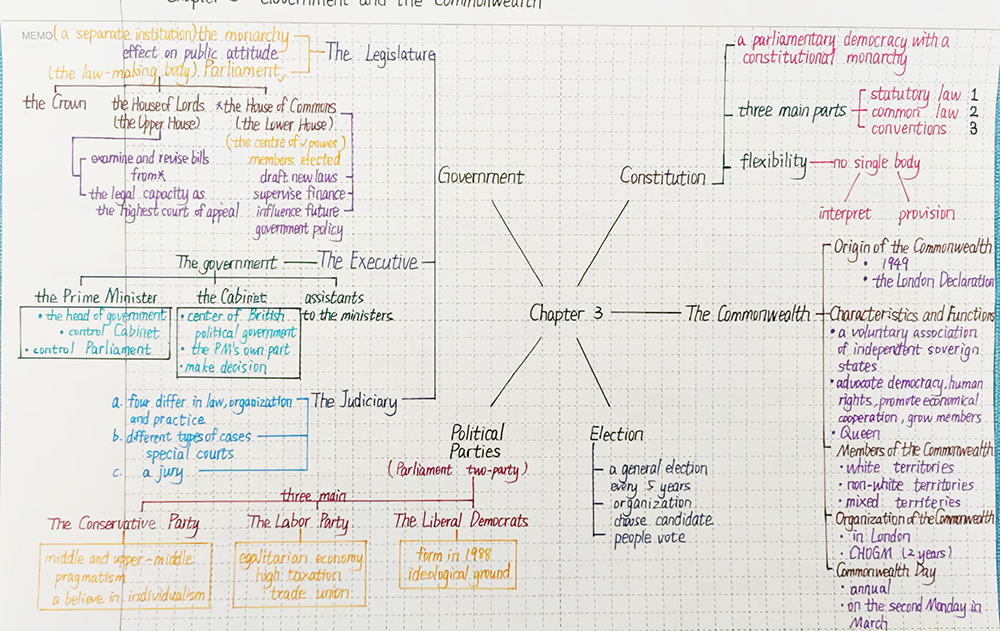 Chapter 3 Government and the Commonwealth
MEMO
(a separate institution) the monarchy
effect on public attitude
(the law-making body) Parliament
The Legislature
the Crown
the House of Lords
(the Upper House)
*the House of Commons
(the Lower House)
(the centre of power)
members elected
draft new laws
supervise finance
influence future
government policy
examine and revise bills
from*
the legal capacity as
the highest court of appeal
Government
The government
The Executive
the Prime Minister
• the head of government
• control Cabinet
• control Parliament
the Cabinet
• center of British
political government
• the PM's own part
• make decision
assistants
to the ministers
The Judiciary
a. four differ in law, organization
and practice
b. different types of cases
special courts
c. a jury
Constitution
a parliamentary democracy with a
constitutional monarchy
three main parts
statutory law 1
common law 2
conventions 3
flexibility
no single body
interpret
provision
Chapter 3
The Commonwealth
Origin of the Commonwealth
• 1949
• the London Declaration
Characteristics and Functions
• a voluntary association
of independent soverign
states
• advocate democracy, human
rights, promote economical
cooperation, grow members
• Queen
Members of the Commonwealth
• white territories
• non-white territories
• mixed territeries
Organization of the Commonwealth
• in London
• CHOGM (2 years)
Commonwealth Day
• annual
• on the second Monday in
March
Political
Parties
(Parliament two-party)
three main
The Conservative Party
middle and upper-middle
pragmatism
a believe in individualism
The Labor Party
egalitarian economy
high taxation
trade union
The Liberal Democrats
form in 1988
ideological ground
Election
a general election
every 5 years
organization
choose candidate
people vote